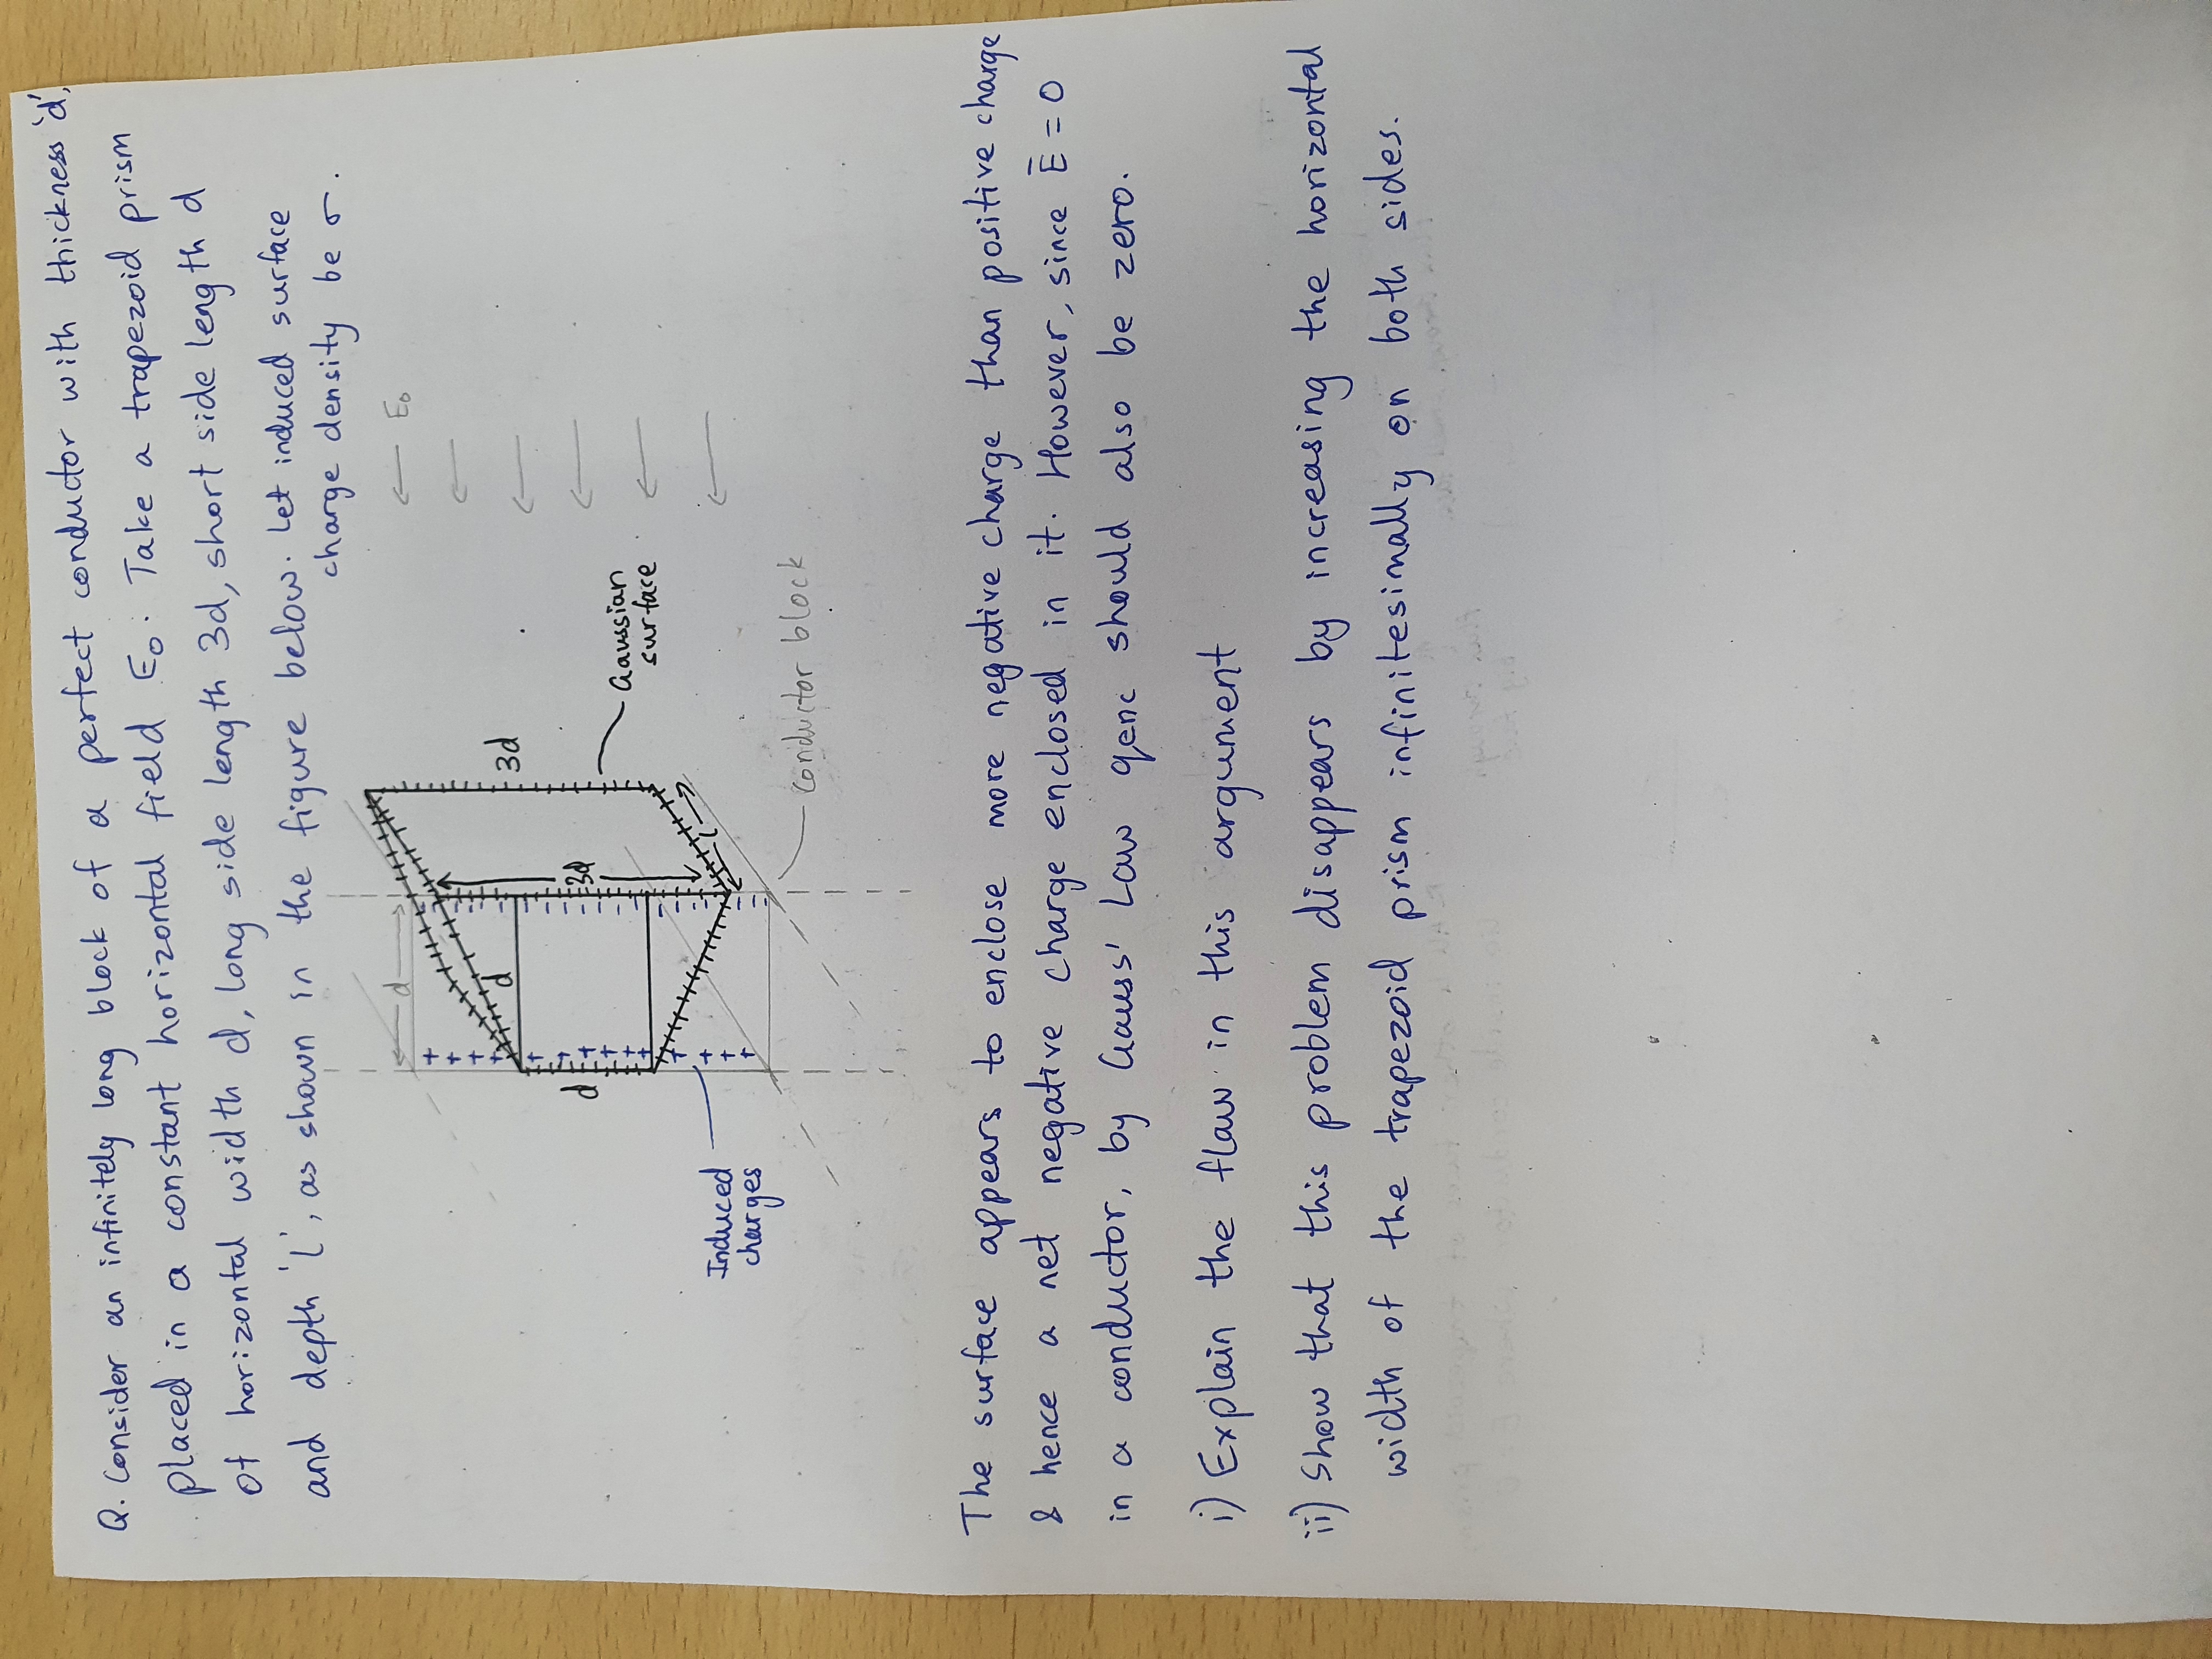 Q. Consider an infinitely long block of a perfect conductor with thickness 'd',
placed in a constant horizontal field E₀. Take a trapezoid prism
of horizontal width d, long side length 3d, short side length d
and depth 'l', as shown in the figure below. Let induced surface
charge density be σ.
d
← E₀
d
3d
d
3d
Gaussian
surface
l
Induced
charges
conductor block
The surface appears to enclose more negative charge than positive charge
& hence a net negative charge enclosed in it. However, since E̅ = 0
in a conductor, by Gauss' Law qenc should also be zero.
i) Explain the flaw in this argument
ii) Show that this problem disappears by increasing the horizontal
width of the trapezoid prism infinitesimally on both sides.